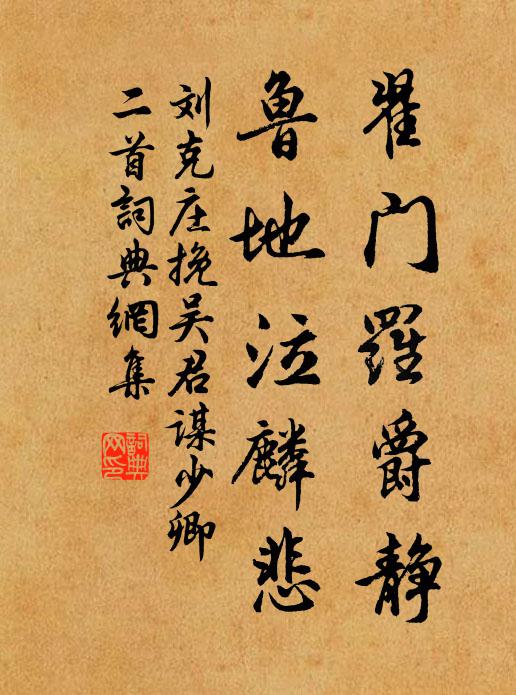 翟门羅爵静
魯地泣麟悲
刘克庄挽吴君谋少卿
二首詞典網集
詞典
网印